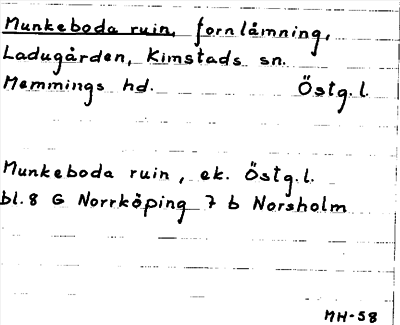 Munkeboda ruin, fornlämning,
Ladugården, Kimstads sn.
Memmings hd. Östg.l.
Munkeboda ruin, ek. Östg.l.
bl. 8 G Norrköping 7 b Norsholm
MH-58